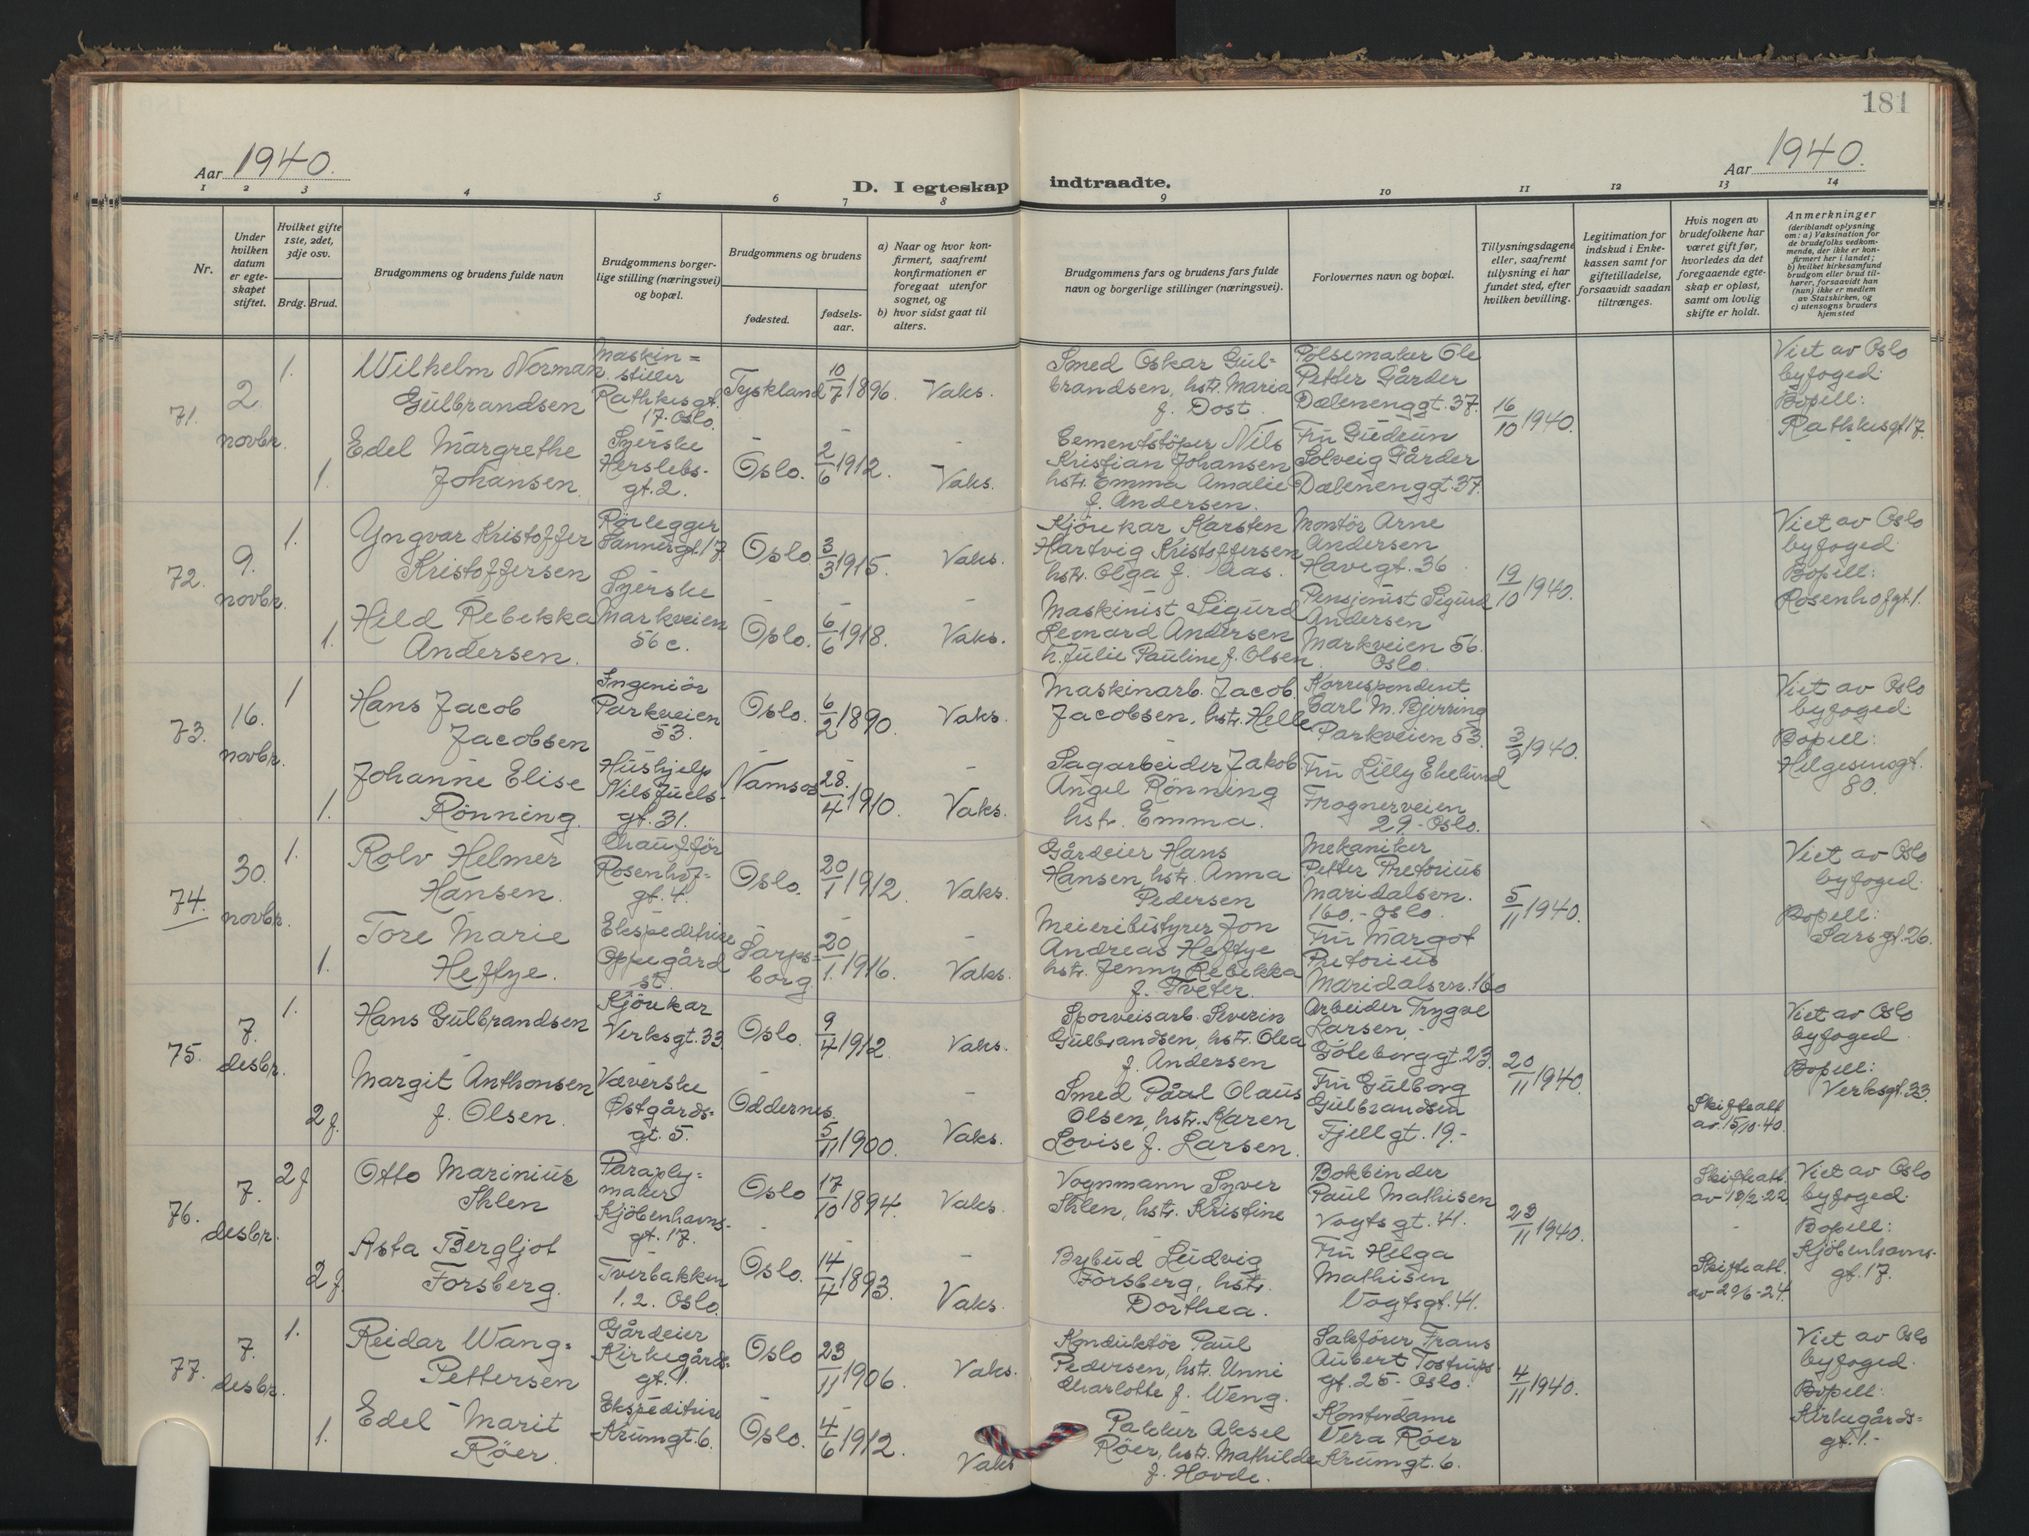 181
Aar 1940.
Aar 1940.
D. I egteskap indtraadte.
1 2 3 4 5 6 7 8 9 10 11 12 13 14
Nr.
Under
hvilken
datum
er egte-
skapet
stiftet.
Hvilket gifte
1ste, 2det,
3dje osv.
Brdg. Brud.
Brudgommens og brudens fulde navn
Brudgommens borger-
lige stilling (næringsvei)
og bopæl.
Brudgommens og brudens
fødested.
fødsels-
aar.
a) Naar og hvor kon-
firmert, saafremt
konfirmationen er
foregaat utenfor
sognet, og
b) hvor sidst gaat til
alters.
Brudgommens fars og brudens fars fulde
navn og borgerlige stillinger (næringsvei).
Forlovernes navn og bopæl.
Tillysningsdagene
eller, saafremt
tillysning ei har
fundet sted, efter
hvilken bevilling.
Legitimation for
indskud i Enke-
kassen samt for
giftetilladelse,
forsaavidt saadan
tiltrænges.
Hvis nogen av
brudefolkene har
været gift før,
hvorledes da det
foregaaende egte-
skap er opløst,
samt om lovlig
skifte er holdt.
Anmerkninger
(deriblandt oplysning
om: a) Vaksination for
de brudefolks vedkom-
mende, der ikke er kon-
firmert her i landet;
b) hvilket kirkesamfund
brudgom eller brud til-
hører, forsaavidt han
(hun) ikke er medlem
av Statskirken, og
c) utensogns bruders
hjemsted
71.
2.
novbr.
1.
Wilhelm Norman
Gulbrandsen
Maskin-
stiller
Rathkesgt.
17. Oslo.
Tyskland
10/7 1896.
Vaks.
Smed Oskar Gul-
brandsen, hstr. Maria
f. Dost.
Pølsemaker Ole
Petter Gårder
Dælenenggt. 37.
16/10 1940.
Viet av Oslo
byfoged.
Bopell:
Rathkesgt 17.
1.
Edel Margrethe
Johansen.
Syerske
Herslebs-
gt. 2.
Oslo.
2/6 1912.
Vaks.
Cementstøper Nils
Kristian Johansen
hstr. Emma Amalie
f. Andersen.
Fru Gudrun
Solveig Gårder
Dælenenggt. 37.
72.
9.
novbr.
1.
Yngvar Kristoffer
Kristoffersen
Rørlegger
Sannergt. 17.
Oslo.
3/3 1915.
Vaks.
Kjørekar Karsten
Hartvig Kristoffersen
hstr. Olga f. Aas.
Montør Arne
Andersen
Havegt. 36.
19/10 1940.
Viet av Oslo
byfoged.
Bopell:
Rosenhofgt. 1.
1.
Hild Rebekka
Andersen.
Syerske
Markveien
56 c.
Oslo.
6/6 1918.
Vaks.
Maskinist Sigurd
Leonard Andersen
h. Julie Pauline f. Olsen.
Pensjonist Sigurd
Andersen
Markveien 56.
Oslo.
73.
16.
novbr.
1
Hans Jacob
Jacobsen
Ingeniør
Parkveien
53.
Oslo.
6/2 1890.
Vaks.
Maskinarb. Jacob
Jacobsen, hstr. Helle
Korrespondent
Carl M. Bjerring
Parkveien 53.
3/9 1940.
Viet av Oslo
byfoged.
Bopell:
Helgesensgt.
80.
1.
Johanne Elise
Rønning.
Hushjelp
Nils Juels-
gt. 31.
Namsos
28./4 1910.
Vaks.
Sagarbeider Jakob
Angel Rønning
hstr. Emma.
Fru Lilly Ekelund
Frognerveien
29 - Oslo.
74.
30.
novbr.
1.
Rolv Helmer
Hansen.
Chauffør
Rosenhof-
gt. 4.
Oslo.
20/1 1912.
Vaks.
Gårdeier Hans
Hansen, hstr. Anna
Pedersen
Mekaniker
Petter Pretorius
Maridalsvn.
160. - Oslo.
5/11 1940.
Viet av Oslo
byfoged.
Bopell:
Sarsgt. 26.
1.
Tore Marie
Heftye.
Ekspeditrise
Oppegård
st.
Sarps-
borg
20/1. 1916.
Vaks.
Meieribestyrer Jon
Andreas Heftye
hstr. Jenny Rebekka
f. Tveter.
Fru Margot
Pretorius
Maridalsvn. 160
75.
7.
desbr.
1.
Hans Gulbrandsen
Kjørekar
Verksgt. 33.
Oslo.
9/4 1912.
Vaks.
Sporveisarb. Severin
Gulbrandsen, hstr. Olea
f. Andersen
Arbeider Trygve
Larsen.
Gøteborggt. 23.
20/11 1940.
Viet av Oslo
byfoged.
Bopell:
Verksgt. 33.
2 f.
Margit Anthonsen
f. Olsen.
Væverske
Østgårds-
gt. 5.
Oddernes.
5/11 1900.
Vaks.
Smed Påul Olaus
Olsen, hstr. Karen
Lovise f. Larsen.
Fru Gulborg
Gulbrandsen
Fjellgt. 19.-
Skifteatt
av 15/10-40.
76.
7.
desbr.
2 f
Otto Marinius
Ihlen
Paraply-
maker
Kjøbenhavns-
gt. 17.
Oslo
17/10 1894.
Vaks.
Vognmann Syver
Ihlen, hstr. Kristine
Bokbinder
Paul Mathisen
Vogtsgt. 41.
23/11 1940.
Skifteatt.
Viet av Oslo
byfoged.
Bopell:
Kjøbenhavns-
gt. 17.
2 f.
Asta Bergljot
Forsberg.
Tverbakken
1. 2. Oslo.
Oslo.
14/4 1893.
Vaks.
Bybud Ludvig
Forsberg, hstr.
Dorthea.
Fru Helga
Mathisen
Vogtsgt. 41.
Skifteatt.
77.
7.
desbr.
1.
Reidar Wang-
Pettersen
Gårdeier
Kirkegårds-
gt. 1.
Oslo
23/11 1906.
Vaks.
Konduktør Paul
Pedersen, hstr. Unni
Charlotte f. Weng.
Sakfører Frans
Aubert Tostrups-
gt. 25 - Oslo.
4/11 1940.
Viet av Oslo
byfoged.
Bopell:
Kirkegårds-
gt. 1.-
1.
Edel Marit
Røer.
Ekspeditrise
Krumgt. 6.
Oslo.
4/6 1912.
Vaks
Pakkur Aksel
Røer, hstr. Mathilde
f. Hovde.
Kontordame
Vera Røer
Krumgt. 6.